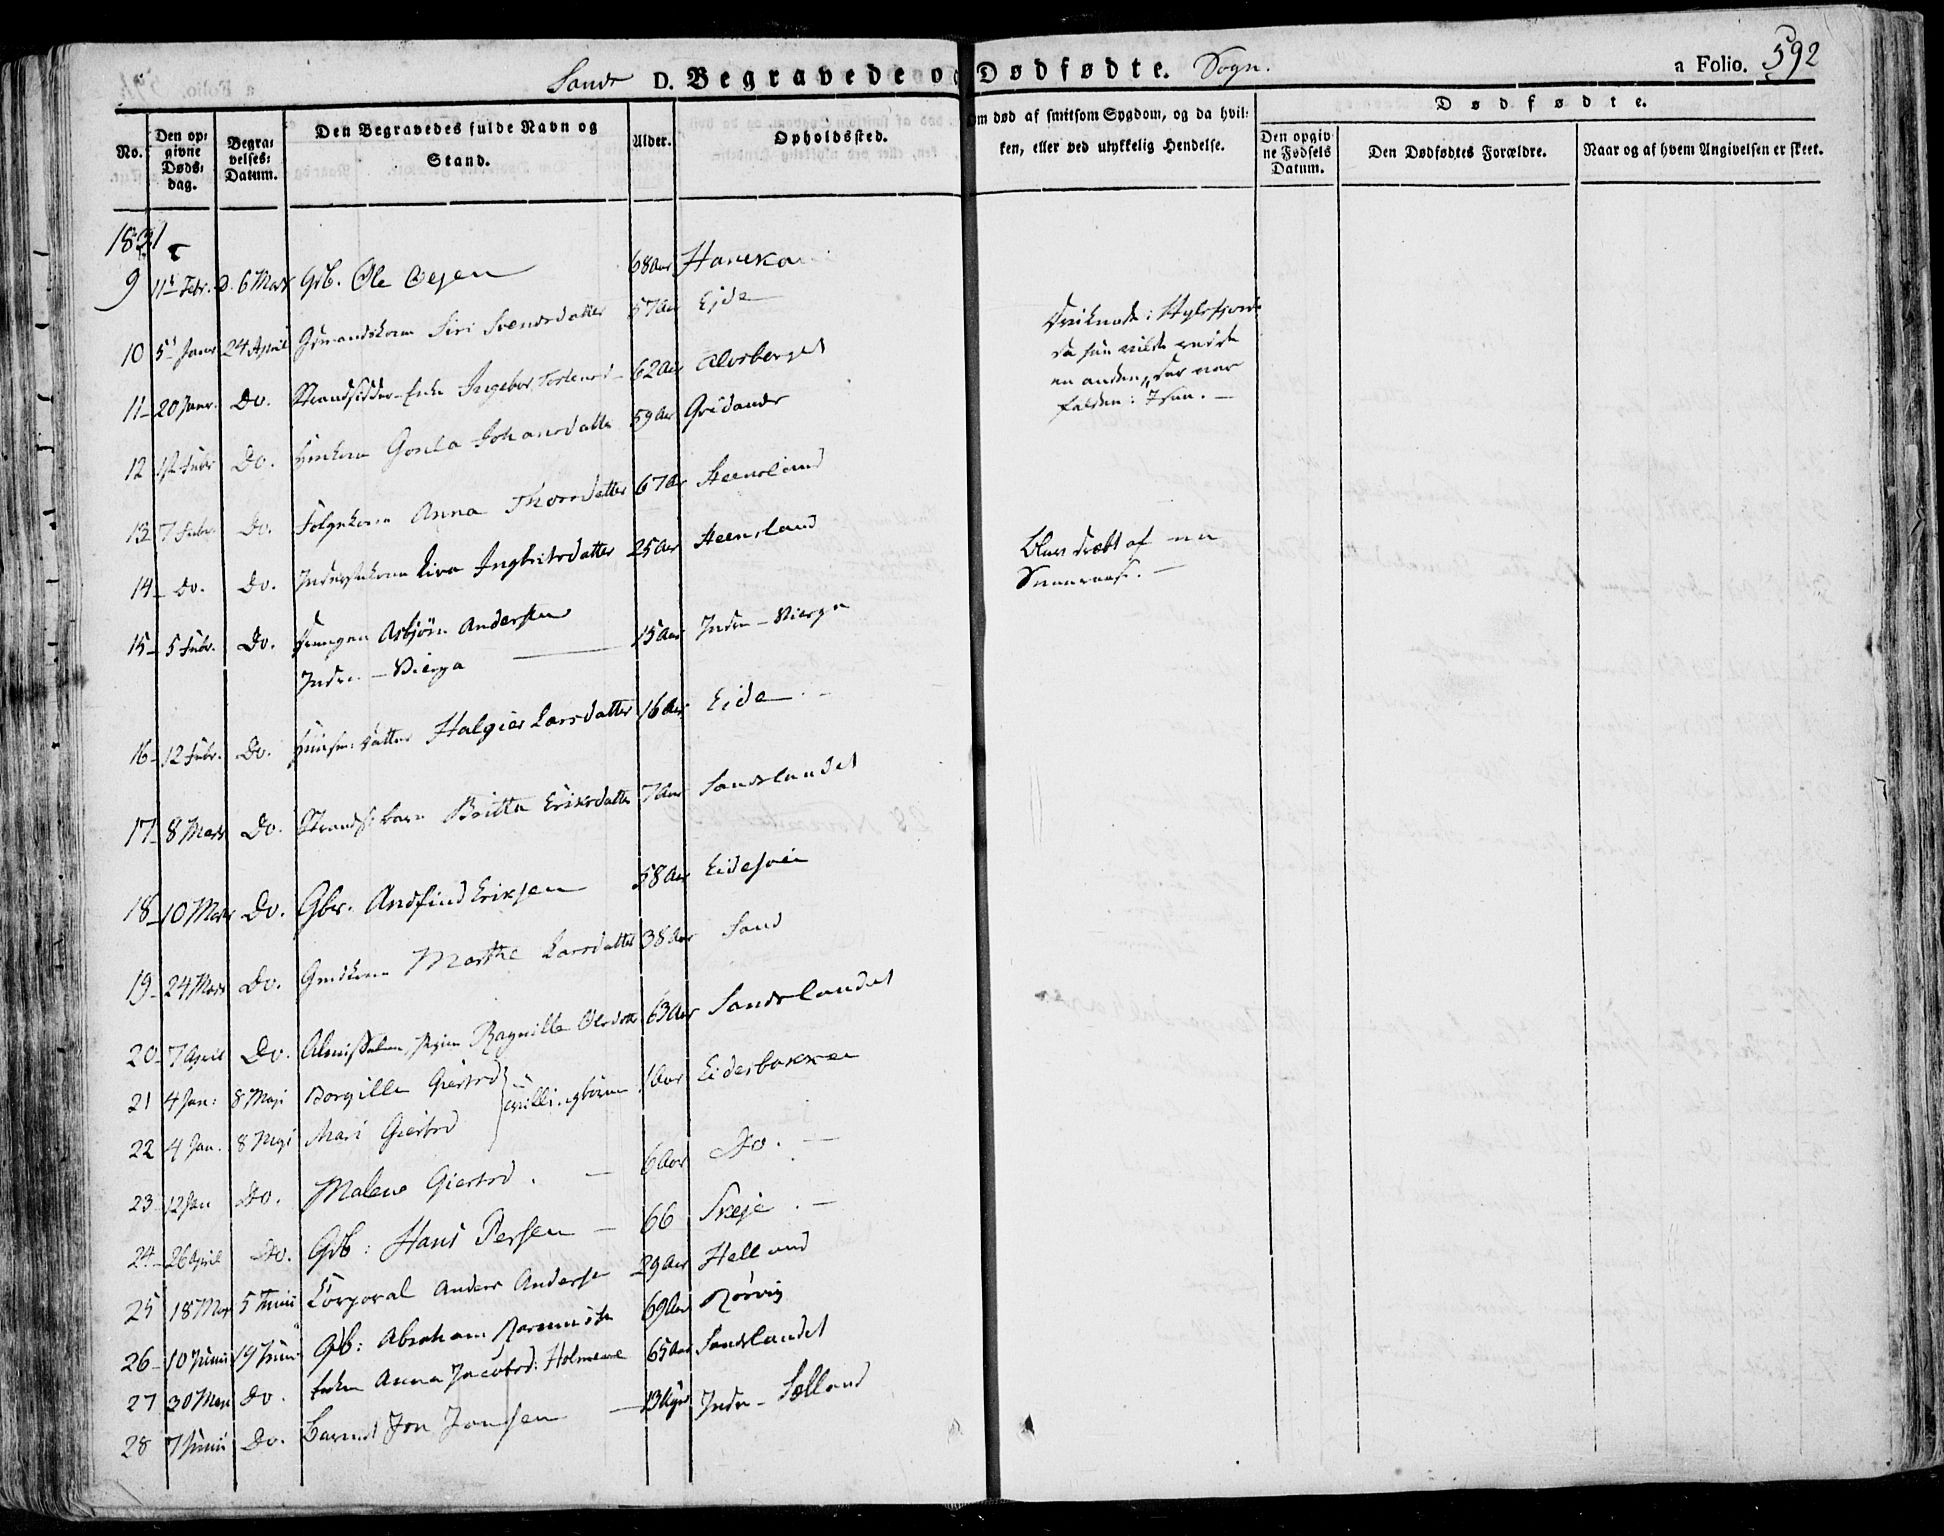 Sands D. Begravede og Dødfødte. Sogn. a Folio. 592
No. Den opgivne Dødsdag. Begravelses-Datum. Den Begravedes fulde Navn og Stand. Alder. Opholdssted. Om død af smitsom Sygdom, og da hvilken, eller ved ulykkelig Hendelse. Dødfødte.
Den opgivne Fødsels Datum. Den Dødfødtes Forældre. Naar og af hvem Angivelsen er skeet.
1831
9 11t Febr. D. 6 Mars Gdb. Ole 68 Aar
10 5t Janr 24 April Gmandskone Siri Svendsdatter 57 Aar Eide
da hun vilde redde
en anden, der var
falden i Isen.
11 20 Janr. Do. Strandsidder-Enke Ingebor 62 Aar
12 12 Febr Do. Johansdatter 59 Aar
13 7 Febr. Do. Anna Thorsdatter 67 Aar Steensland
14 Do. Do. Inderstekone Siva Ingbritsdatter 25 Aar Steensland
15 5 Febr. Do. Drengen Asbjörn Andersen 15 Aar Indre-Vierga
Indre-Vierga
Blev dræbt af en
Sneeraas.
16 12 Febr. Do. datter Halgier Larsdatter 16 Aar Eide
17 8 Mars Do. Britta Eriksdatter 7 Aar Sandslandet
18 10 Mars Do. Gbr. Andfind Eriksen 58 Aar
19 24 Mars Do. Marthe Larsdatter 38 Aar Sand
20 7 April Do. Ragnille Olsdatter 63 Aar Sandslandet
21 4 Jan: 8 Maji Borgille Giertsd Tvillingbörn 1 Aar Eidesbakken
22 4 Jan. 8 Maji Mari Giertsd
23 12 Jan Do. Malene Giertsd. 6 Aar Do.
24 26 April Do. Gdb: Hans Persen 66 Skeje
25 18 Maj 5 Junii Corporal Anders Andersen 29 Aar Helland
26 10 Junii 19 Junii Gdb: Abraham 69 Aar Rörvig
27 30 Maji Do. Enken Anna Jacobsd: Holmene 65 Aar Sandslandet
28 7 Junii Do. Barnet Jon Jonsen 13 Uger Indre-Sælland